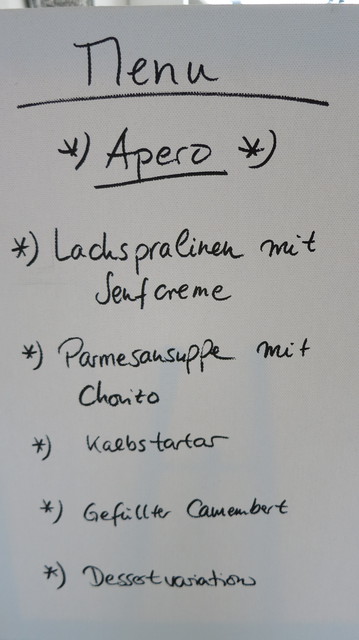 Menu
*) Apero *)
*) Lachspralinen mit
Senfcreme
*) Parmesansuppe mit
Chorito
*) Kalbstartar
*) Gefüllter Camembert
*) Dessertvariation